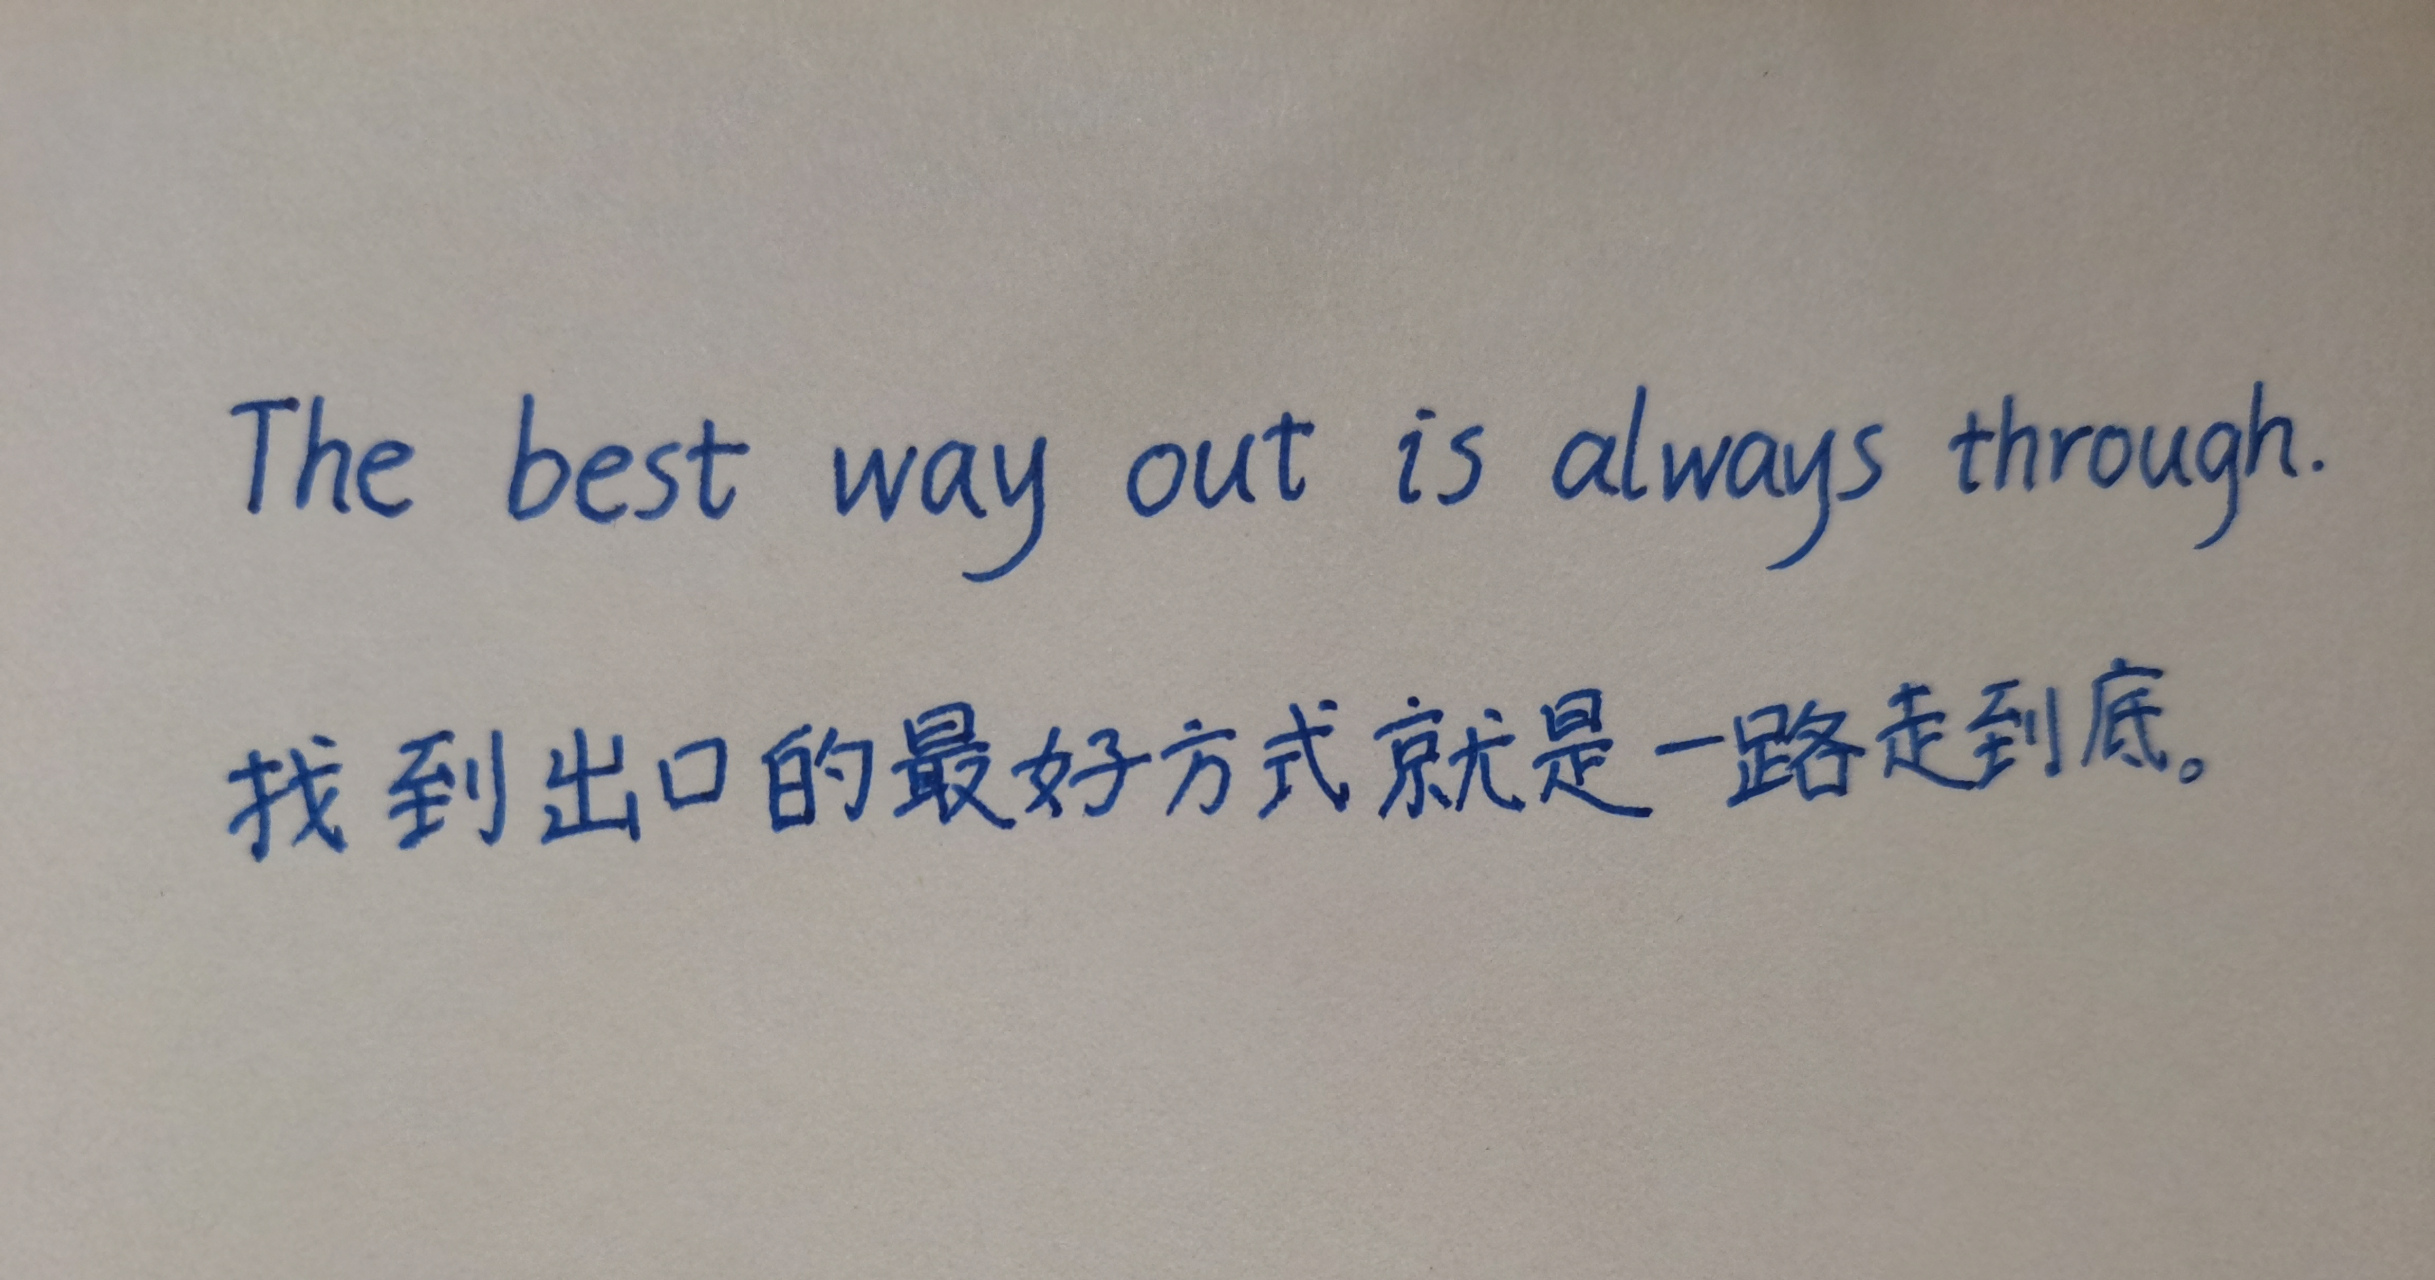 The best way out is always through.
找到出口的最好方式就是一路走到底。